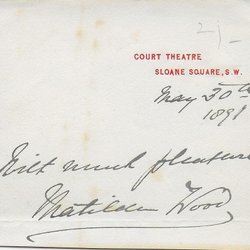 2/-
COURT THEATRE
SLOANE SQUARE, S.W.
May 30th
1891
With much pleasure
Matilda Wood